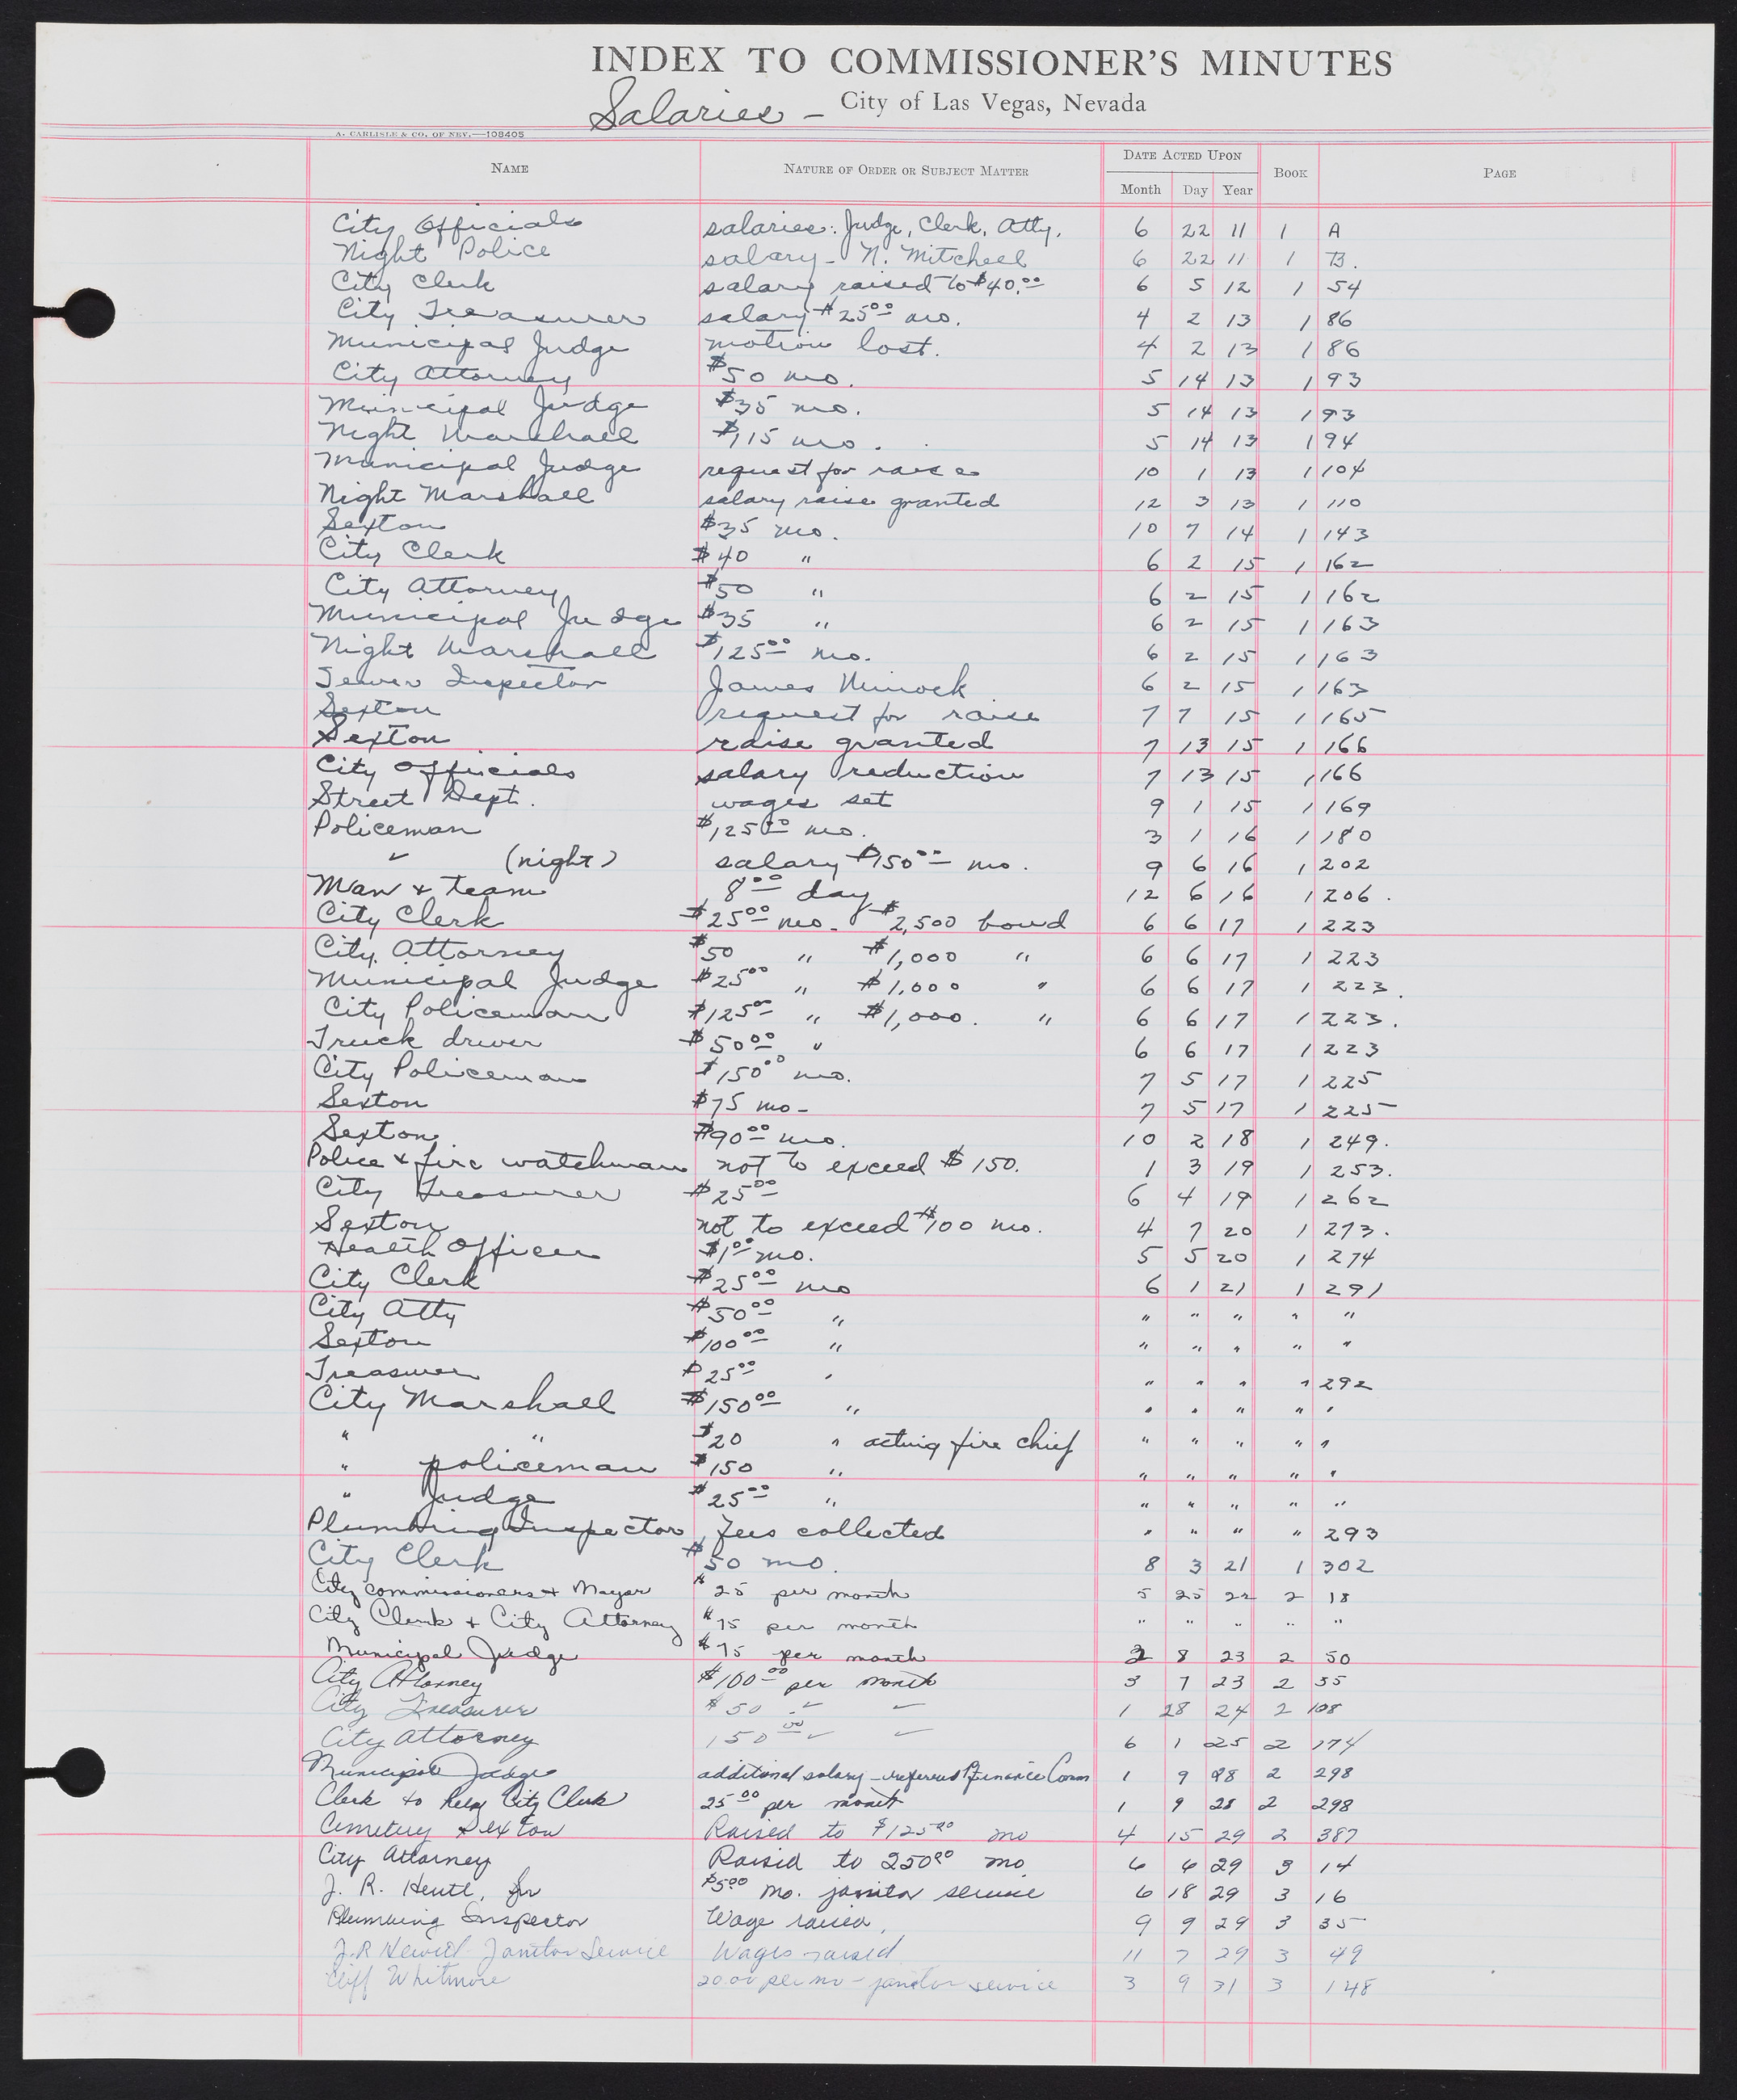 INDEX TO COMMISSIONER'S MINUTES
Salaries - City of Las Vegas, Nevada
A. CARLISLE & CO. OF NEV.—108405
NAME NATURE OF ORDER OR SUBJECT MATTER DATE ACTED UPON BOOK PAGE
Month Day Year
City Officials salaries: Judge, Clerk, Atty. 6 22 11 1 A
Night Police salary - N. Mitchell 6 22 11 1 B.
City Clerk salary raised to $40.00 6 5 12 1 54
City Treasurer salary $25.00 mo. 4 2 13 1 86
Municipal Judge motion lost. 4 2 13 1 86
City Attorney $50 mo. 5 14 13 1 93
Municipal Judge $35 mo. 5 14 13 1 93
Night Marshall $115 mo. 5 14 13 1 94
Municipal Judge request for raise 10 1 13 1 104
Night Marshall salary raise granted 12 3 13 1 110
Sexton $35 mo. 10 7 14 1 143
City Clerk $40 " 6 2 15 1 162
City Attorney $50 " 6 2 15 1 162
Municipal Judge $35 " 6 2 15 1 163
Night Marshall $125.00 mo. 6 2 15 1 163
Sewer Inspector James 6 2 15 1 163
Sexton request for raise 7 7 15 1 165
Sexton raise granted 7 13 15 1 166
City Officials salary reduction 7 13 15 1 166
Street Dept. wages set 9 1 15 1 169
Policeman $125.00 mo. 3 1 16 1 180
" (night) salary $150.00 mo. 9 6 16 1 202
Man & team 8.00 day 12 6 16 1 206.
City Clerk $25.00 mo. $2,500 bond 6 6 17 1 223
City Attorney $50 " $1,000 " 6 6 17 1 223
Municipal Judge $25.00 " $1,000 " 6 6 17 1 223.
City Policeman $125.00 " $1,000. " 6 6 17 1 223.
Truck driver $50.00 " 6 6 17 1 223
City Policeman $150.00 mo. 7 5 17 1 225
Sexton $75 mo - 7 5 17 1 225
Sexton $90.00 mo. 10 2 18 1 249.
Police & fire watchman not to exceed $150. 1 3 19 1 253.
City Treasurer $25.00 6 4 19 1 262
Sexton not to exceed $100 mo. 4 7 20 1 273.
Health Officer $1.00 mo. 5 5 20 1 274
City Clerk $25.00 mo 6 1 21 1 291
City Atty $50.00 " " " " " "
Sexton $100.00 " " " " " "
Treasurer $25.00 " " " " " 292
City Marshall $150.00 " " " " " "
" " $20 " acting fire chief " " " " "
" policeman $150 " " " " " "
" Judge $25.00 " " " " " "
Plumbing Inspector, fees collected " " " " 293
City Clerk $50 mo. 8 3 21 1 302
City commissioners & Mayor $25 per month 5 25 22 2 18
City Clerk & City Attorney $75 per month " " " " "
Municipal Judge $75 per month 2 8 23 2 50
City Attorney $100.00 per month 3 7 23 2 55
City Treasurer $50 " " 1 28 24 2 108
City Attorney 150.00 " " 6 1 25 2 174
Municipal Judge additional salary - referred Finance Comm 1 9 28 2 298
Clerk to help City Clerk 25.00 per month 1 9 28 2 298
Cemetery Sexton Raised to $125.00 mo 4 15 29 2 387
City Attorney Raised to 250.00 mo 6 6 29 3 14
J. R. $5.00 mo. janitor service 6 18 29 3 16
Plumbing Inspector Wage raised, 9 9 29 3 35
J.R Hewitt Janitor Service Wages raised 11 7 29 3 49
Cliff Whitmore 20.00 per mo - janitor service 3 9 31 3 148